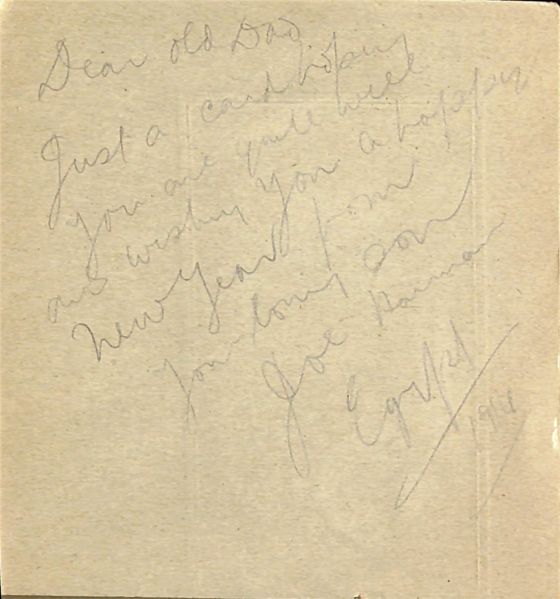 Dear old Dad
Just a card hoping
you are quite well
and wishing you a happy
New Year from
your loving son
Joe
Egypt